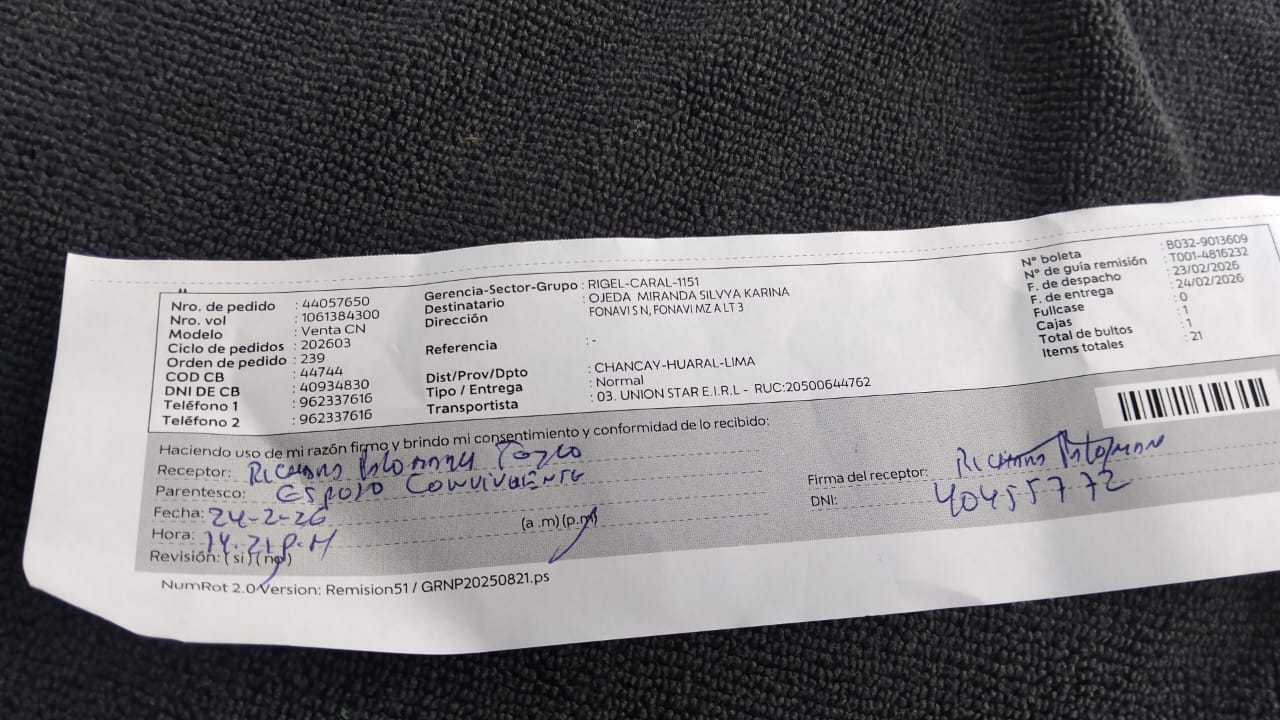 Nro. de pedido : 44057650
Nro. vol : 1061384300
Modelo : Venta CN
Ciclo de pedidos : 202603
Orden de pedido : 239
COD CB : 44744
DNI DE CB : 40934830
Teléfono 1 : 962337616
Teléfono 2 : 962337616
Gerencia-Sector-Grupo : RIGEL-CARAL-1151
Destinatario : OJEDA MIRANDA SILVYA KARINA
Dirección FONAVI S N, FONAVI MZ A LT 3
Referencia : -
Dist/Prov/Dpto : CHANCAY-HUARAL-LIMA
Tipo / Entrega : Normal
Transportista : 03. UNION STAR E.I.R.L - RUC:20500644762
N° boleta : B032-9013609
N° de guía remisión : T001-4816232
F. de despacho : 23/02/2026
F. de entrega : 24/02/2026
Fullcase : 0
Cajas : 1
Total de bultos : 1
Items totales : 21
Haciendo uso de mi razón firmo y brindo mi consentimiento y conformidad de lo recibido:
Receptor: RICHARD
Parentesco: ESPOSO CONVIVIENTE
Fecha: 24-2-26
Hora: 14.21 P.M (a .m) (p.m)
Revisión: (si) (no)
Firma del receptor: RICHARD
DNI: 40455772
NumRot 2.0 Version: Remision51 / GRNP20250821.ps